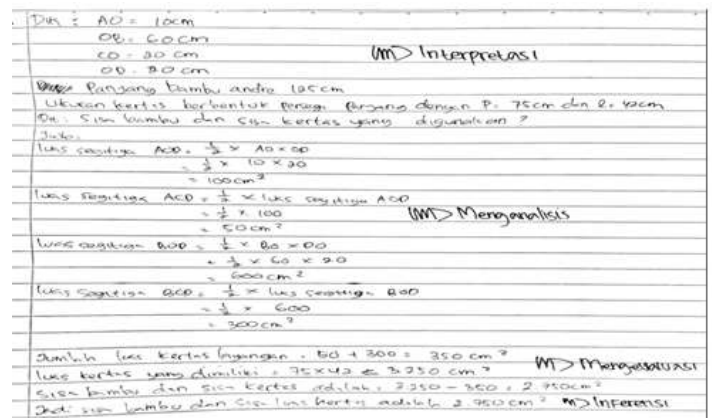 Dik : AO = 10cm
OB = 60cm
CO = 20 cm
OD = 20 cm
(M) Interpretasi
Panjang bambu andre 125cm
Ukuran kertas berbentuk persegi panjang dengan P = 75cm dan l = 42cm
Dit : Sisa bambu dan sisa kertas yang digunakan ?
Jwb :
luas segitiga AOD = 1/2 × AO × OD
= 1/2 × 10 × 20
= 100 cm²
luas segitiga ACD = 1/2 × luas segitiga AOD
= 1/2 × 100
(M) Menganalisis
= 50 cm²
luas segitiga BOD = 1/2 × BO × DO
= 1/2 × 60 × 20
= 600 cm²
luas segitiga BCD = 1/2 × luas segitiga BOD
= 1/2 × 600
= 300 cm²
Jumlah luas kertas layangan = 50 + 300 = 350 cm²
luas kertas yang dimiliki = 75×42 = 3.250 cm²
(M) Mengevaluasi
sisa bambu dan sisa kertas adalah = 3.250 - 350 = 2.950cm²
Jadi sisa bambu dan sisa luas kertas adalah 2.950 cm²
(M) Inferensi